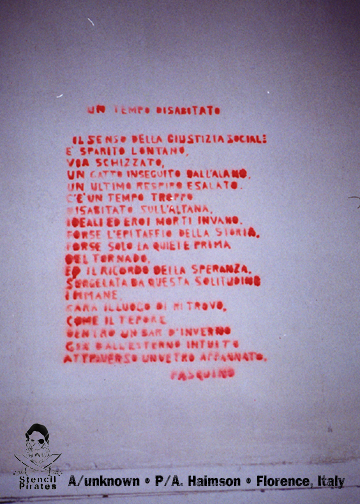 UN TEMPO DISABITATO
IL SENSO DELLA GIUSTIZIA SOCIALE
E' SPARITO LONTANO,
VIA SCHIZZATO,
UN GATTO INSEGUITO DALL'ALANO.
UN ULTIMO RESPIRO ESALATO.
C'E' UN TEMPO TROPPO
DISABITATO SULL'ALTANA,
IDEALI ED EROI MORTI INVANO.
FORSE L'EPITAFFIO DELLA STORIA,
FORSE SOLO LA QUIETE PRIMA
DEL TORNADO,
ED IL RICORDO DELLA SPERANZA,
SURGELATA DA QUESTA SOLITUDINE
IMMANE,
SARA IL LUOGO DI RITROVO,
COME IL TEPORE
DENTRO UN BAR D'INVERNO
GIA DALL'ESTERNO INTUITO
ATTRAVERSO UN VETRO APPANNATO.
PASQUINO
Stencil
Pirates
A/unknown • P/A. Haimson • Florence, Italy